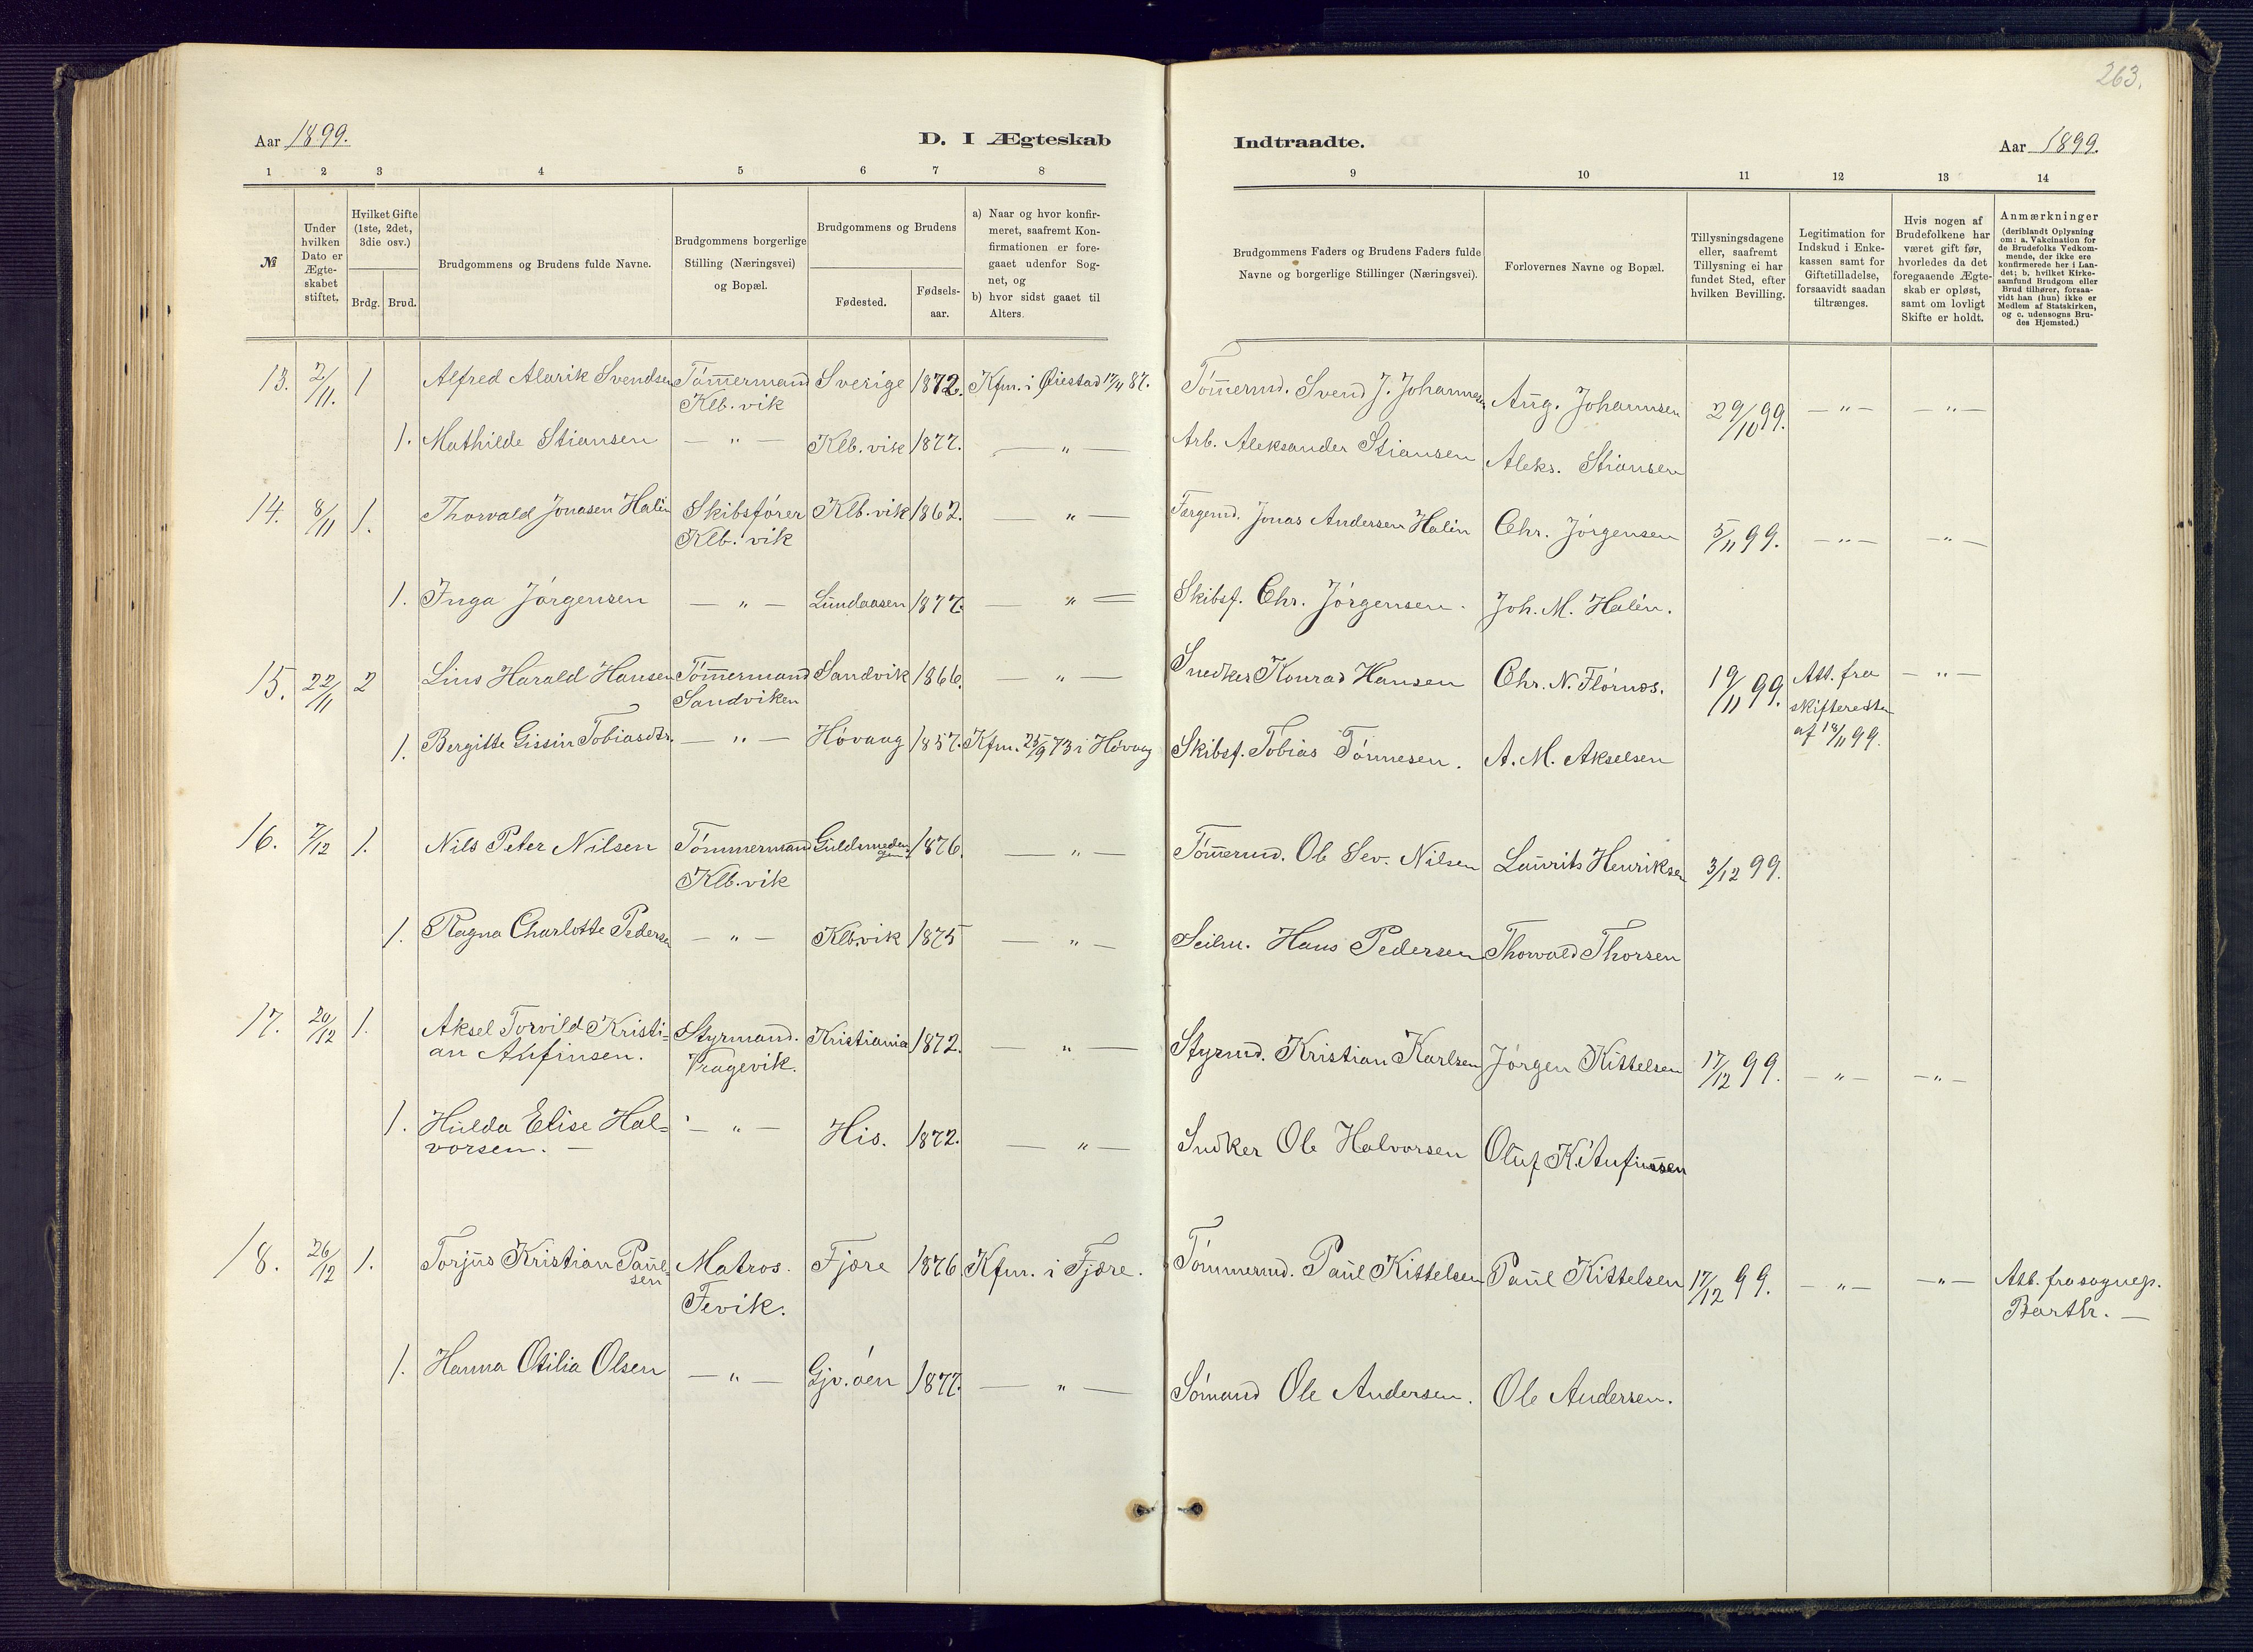 263.
Aar 1899.
D. I Ægteskab
Indtraadte.
Aar 1899.
1 2 3 4 5 6 7 8
9 10 11 12 13 14
№
Under hvilken Dato er Ægteskabet stiftet.
Hvilket Gifte (1ste, 2det, 3die osv.)
Brdg. Brud.
Brudgommens og Brudens fulde Navne.
Brudgommens borgerlige Stilling (Næringsvei) og Bopæl.
Brudgommens og Brudens
Fødested.
Fødsels-aar.
a) Naar og hvor konfirmeret, saafremt Konfirmationen er foregaaet udenfor Sognet, og
b) hvor sidst gaaet til Alters.
Brudgommens Faders og Brudens Faders fulde Navne og borgerlige Stillinger (Næringsvei).
Forlovernes Navne og Bopæl.
Tillysningsdagene eller, saafremt Tillysning ei har fundet Sted, efter hvilken Bevilling.
Legitimation for Indskud i Enkekassen samt for Giftetilladelse, forsaavidt saadan tiltrænges.
Hvis nogen af Brudefolkene har været gift før, hvorledes da det foregaaende Ægteskab er opløst, samt om lovligt Skifte er holdt.
Anmærkninger (deriblandt Oplysning om: a. Vakcination for de Brudefolks Vedkommende, der ikke ere konfirmerede her i Landet; b, hvilket Kirkesamfund Brudgom eller Brud tilhører, forsaavidt han (hun) ikke er Medlem af Statskirken, og c. udensogns Brudes Hjemsted.)
13. 2/11. 1 Alfred Alarik Svendsen Tømmermand Sverige 1872. Kfm. i Øiestad 17/11 87. Tømermd. Svend J. Johannesen Aug. Johannsen 29/10 99. — " — — " —
Klb. vik
1. Mathilde Stiansen — " — Klb. vik 1877. — " — Arb. Aleksander Stiansen Aleks. Stiansen
14. 8/11 1. Thorvald Jonasen Halin Skibsfører Klb. vik 1862. — " — Fargemd. Jonas Andersen Halin Chr. Jørgensen 5/11 99. — " — — " —
Klb. vik
1. Inga Jørgensen — " — Lundaasen 1877. — " — Skibsf. Chr. Jørgensen. Joh. M. Halin.
15. 22/11 2 Lins Harald Hansen Tømmermand Sandvik 1866. — " — Snedker Konrad Hansen Chr. N. Flørnæs. 19/11 99. Att. fra — " —
Sandviken skifteretten
1. Bergitte Gissin Tobiasdtr. — " — Høvaag 1857. Kfm. 25/9 73 i Høvaag Skibsf. Tobias Tønnesen. A. M. Akselsen af 18/11 99.
16. 7/12 1. Nils Peter Nilsen Tømmermand Guldsmedengen 1876. — " — Tømermd. Ole Sev. Nilsen Laurits Henriksen 3/12 99.
Klb. vik
1. Ragna Charlotte Pedersen — " — Klb.vik 1875 — " — Seilm. Hans Pedersen Thorvald Thorsen
17. 20/12 1. Aksel Torvild Kristi= Styrmand. Kristiania 1872. — " — Styrmd. Kristian Karlsen Jørgen Kittelsen 17/12 99. — " — — " —
an Anfinsen. Vragevik.
1. Hulda Elise Hal= — " — His. 1872. — " — Sndker Ole Halvorsen Oluf K. Anfinssen
vorsen. —
18. 26/12 1. Torjus Kristian Paul= Matros. Fjære 1876 Kfm. i Fjære. Tømmermd. Paul Kittelsen Paul Kittelsen 17/12 99. — " — — " — Att. fra sognep.
sen Fevik. Barth. —
1. Hanna Otilia Olsen — " — Gjv.øen 1877. — " — Sømand Ole Andersen. Ole Andersen.